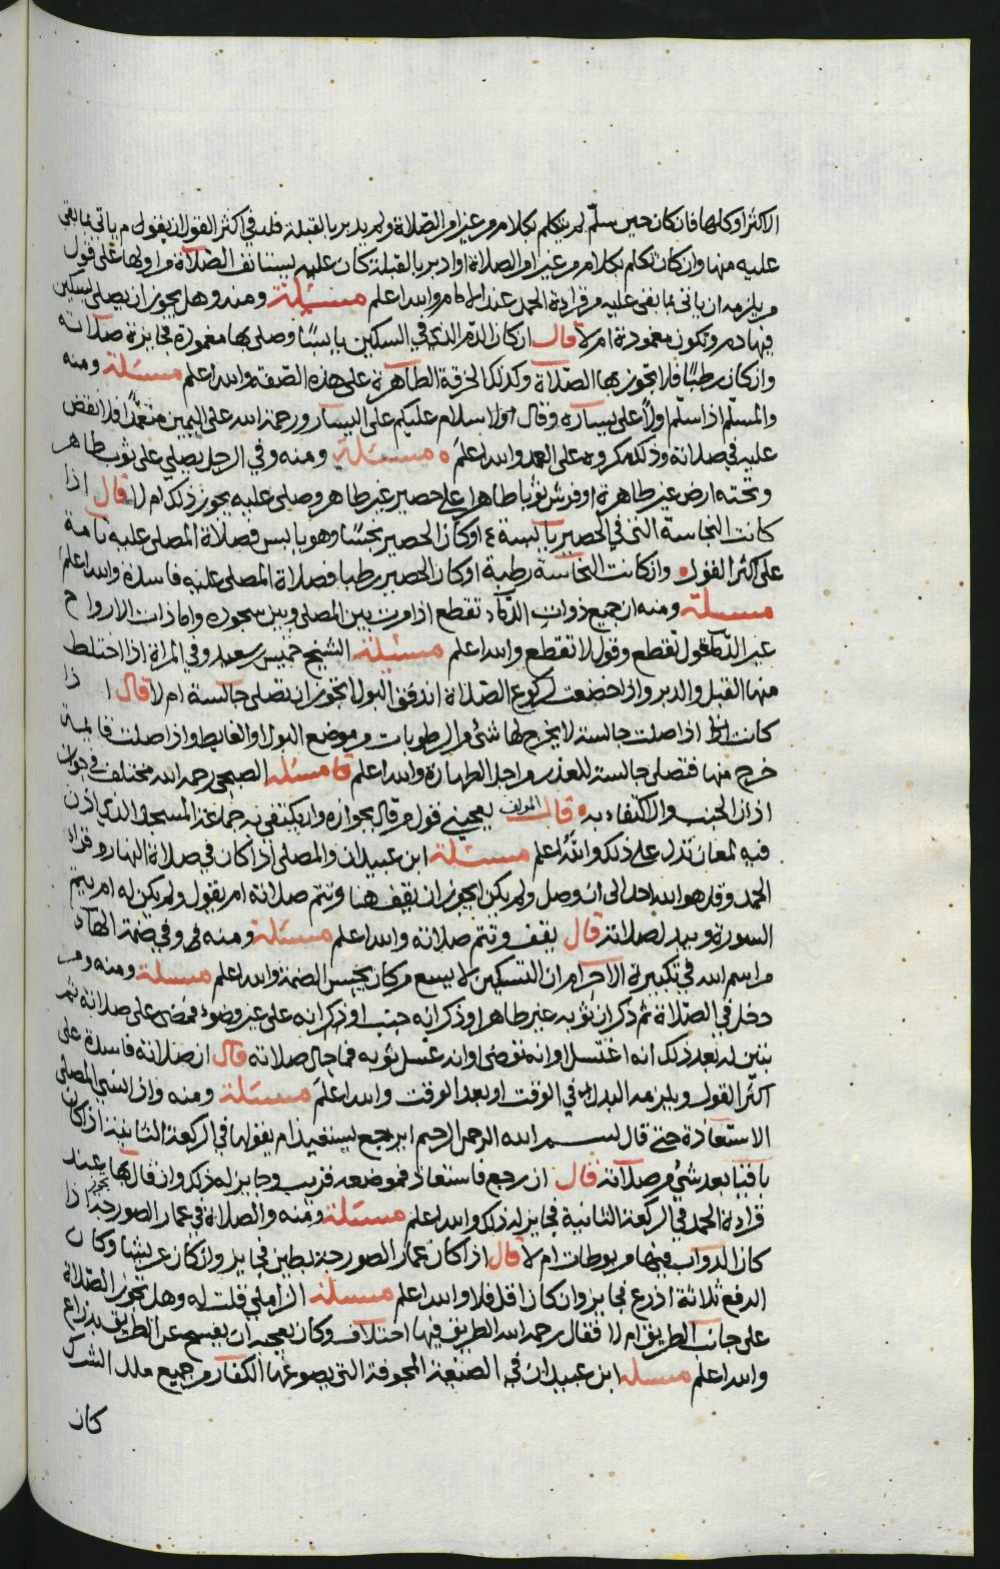 الاكثر او كلها فان كان حين سلم لم يتكلم بكلام من غير امر الصلاة ولم يدبر بالقبلة فله في اكثر القول ان يقوم ياتي بما بقي
عليه منها وان كان تكلم بكلام من غير امر الصلاة او ادبر بالقبلة كان عليه يستانف الصلاة من اولها على قول
من يلزمه ان ياتي بما بقي عليه من قرادة الحمد عند الامام والله اعلم مسئلة ومنه وهل يجوز ان يصلي بسكين
فيها دم وتكون مغمودة ام لا قال ان كان الدم الذي في السكين يابسًا وصلى بها مغمودة فجايزة صلاته
وان كان رطبًا فلا تجوز بها الصلاة وكذلك الخرقة الطاهرة على هذه الصفة والله اعلم مسئلة ومنه
والمسلم اذا سلم اولًا على يساره وقال اولا سلام عليكم على اليسار ورحمة الله على اليمين متعمدًا فلا نقض
عليه في صلاته وذلك مكروه على العمد والله اعلم مسئلة ومنه وفي الرجل يصلي على ثوب طاهر
وتحته ارض غير طاهرة او فرش ثوبا طاهرا على حصير غير طاهر وصلى عليه يجوز ذلك ام لا قال اذا
كانت النجاسة التي في الحصير يابسة او كان الحصير نجسًا وهو يابس فصلاة المصلي عليه تامة
على اكثر القول وان كانت النجاسة رطبة او كان الحصير رطبا فصلاة المصلي عليه فاسدة والله اعلم
مسئلة ومنه ان جميع ذوات الدماء تقطع اذا مرت بين المصلي وبين سجوده واما ذات الارواح
غير الدما فقول تقطع وقول لا تقطع والله اعلم مسئلة الشيخ خميس بن سعيد وفي المراة اذا اختلط
منها القبل والدبر واذا خضعت لركوع الصلاة اندفق البول ايجوز ان تصلي جالسة ام لا قال اذا
كانت اذا صلت جالسة لا يخرج لها شيء من الرطوبات من موضع البول او الغايط واذا صلت قايمة
خرج منها فتصلي جالسة للعذر من اجل الطهارة والله اعلم مسئلة الصبحي رحمه الله مختلف في جواز
اذان الجنب والاكتفاء به قال المولف يعجبني قول من قال بجوازه وان يكتفي به جماعة المسجد الذي اذن
فيه لمعان تدل على ذلك والله اعلم مسئلة ابن عبيدان والمصلي اذا كان في صلاة النهار وقراء
الحمد وقل هو الله احد الى ان وصل ولم يكن ايجوز ان يقف هنا وتتم صلاته ام يقول ولم يكن له ام يتم
السورة ويبدل صلاته قال يقف وتتم صلاته والله اعلم مسئلة ومنه وفي ضمة الهاء
من اسم الله في تكبيرة الاحرام ان التسكين لا يسع من كان يحسن الضمة والله اعلم مسئلة ومنه ومن
دخل في الصلاة ثم ذكر ان ثوبه غير طاهر او ذكر انه جنب او ذكر انه على غير وضوء فمضى على صلاته ثم
تبين له بعد ذلك انه اغتسل او انه توضى او انه غسل ثوبه فما حال صلاته قال ان صلاته فاسدة على
اكثر القول ويلزمه البدل في الوقت او بعد الوقت والله اعلم مسئلة ومنه واذا نسي المصلي
الاستعاذة حتى قال بسم الله الرحمن الرحيم ايرجع يستعيذ ام يقولها في الركعة الثانية اذا كان
باقيا بعد شيء من صلاته قال ان رجع فاستعاذ فموضعه قريب وجايز له ذلك وان قالها عند
قرادة الحمد في الركعة الثانية فجايز له ذلك والله اعلم مسئلة ومنه والصلاة في عمار الصور يجوز اذا
كان الدواب فيها مربوطات ام لا قال اذا كان عمار الصور جنة بطين فجايز وان كان عريشا وكان
الدفع ثلاثة اذرع فجايز وان كان اقل فلا والله اعلم مسئلة الزاملي قلت له وهل تجوز الصلاة
على جانب الطريق ام لا فقال رحمه الله الطريق فيها اختلاف وكان يعجبه ان يفسح عن الطريق بذراع
والله اعلم مسئلة ابن عبيدان في الصنعة المجوفة التي يصوغها الكفار من جميع ملل الشرك
كان